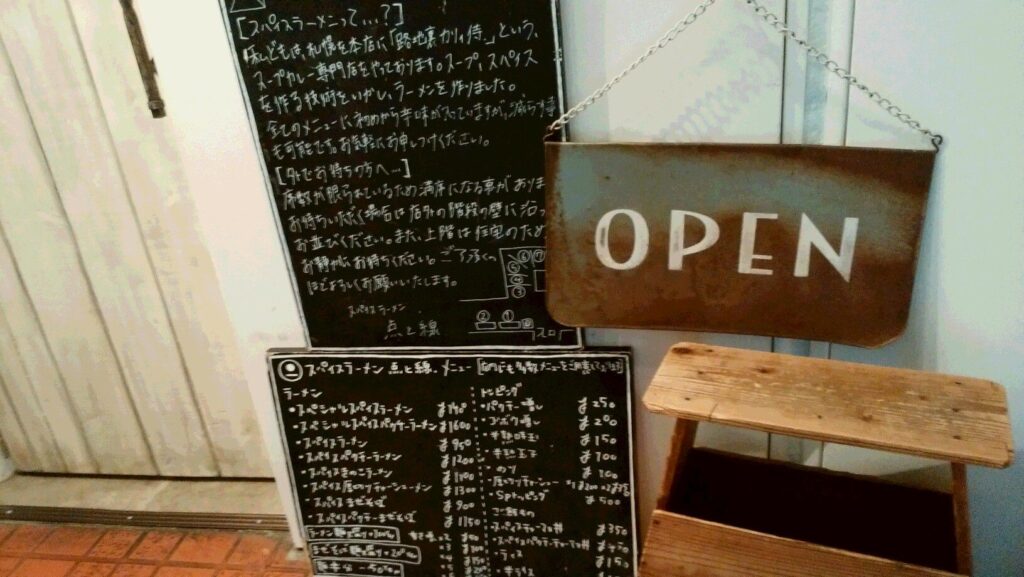 [スパイスラーメンって…?]
私どもは、札幌を本店に「路地裏カリィ侍.」という、
スープカレー専門店をやっております。スープ、スパイス
を作る技術をいかし、ラーメンを作りました。
全てのメニューに初めから辛味が入っていますが、減らす事
も可能です。お気軽にお申しつけください。
[外でお待ちの方へ…]
席数が限られているため満席になる事があります
お待ちいただく場合は店外の階段の壁に沿っ
お並びください。また、上階は住宅のため
お静かにお待ちくださいと ご了承く
ほどよろしくお願いいたします。
スパイスラーメン
点と線
OPEN
スパイスラーメン 点と線. メニュー
ラーメン
・スペシャルスパイスラーメン
・スペシャルスパイスパクチーラーメン ¥1600
・スパイスラーメン ¥950
・スパイスパクチーラーメン ¥1200
・スパイスきのこラーメン ¥1100
・スパイス厚切りチャーシューメン ¥1300
・スパイスまぜそば ¥900
・スパイスパクチーまぜそば ¥1150
トッピング
・パクチー増し ¥250
・ゴボウ増し ¥200
・半熟味玉 ¥150
・半熟玉子 ¥100
・のり ¥100
・厚切りチャーシュー
・SPトッピング ¥500
ご飯もの
¥350
・ライス
・半ライス